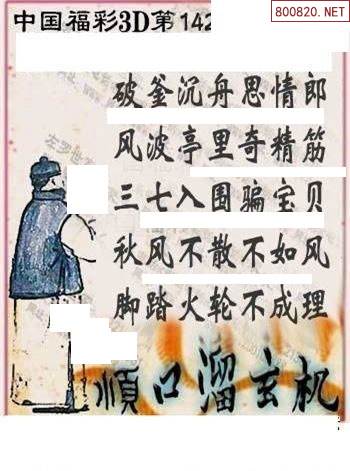 800820.NET
中国福彩3D第142
破釜沉舟思情郎
风波亭里奇精筋
三七入围骗宝贝
秋风不散不如风
脚踏火轮不成理
顺口溜玄机